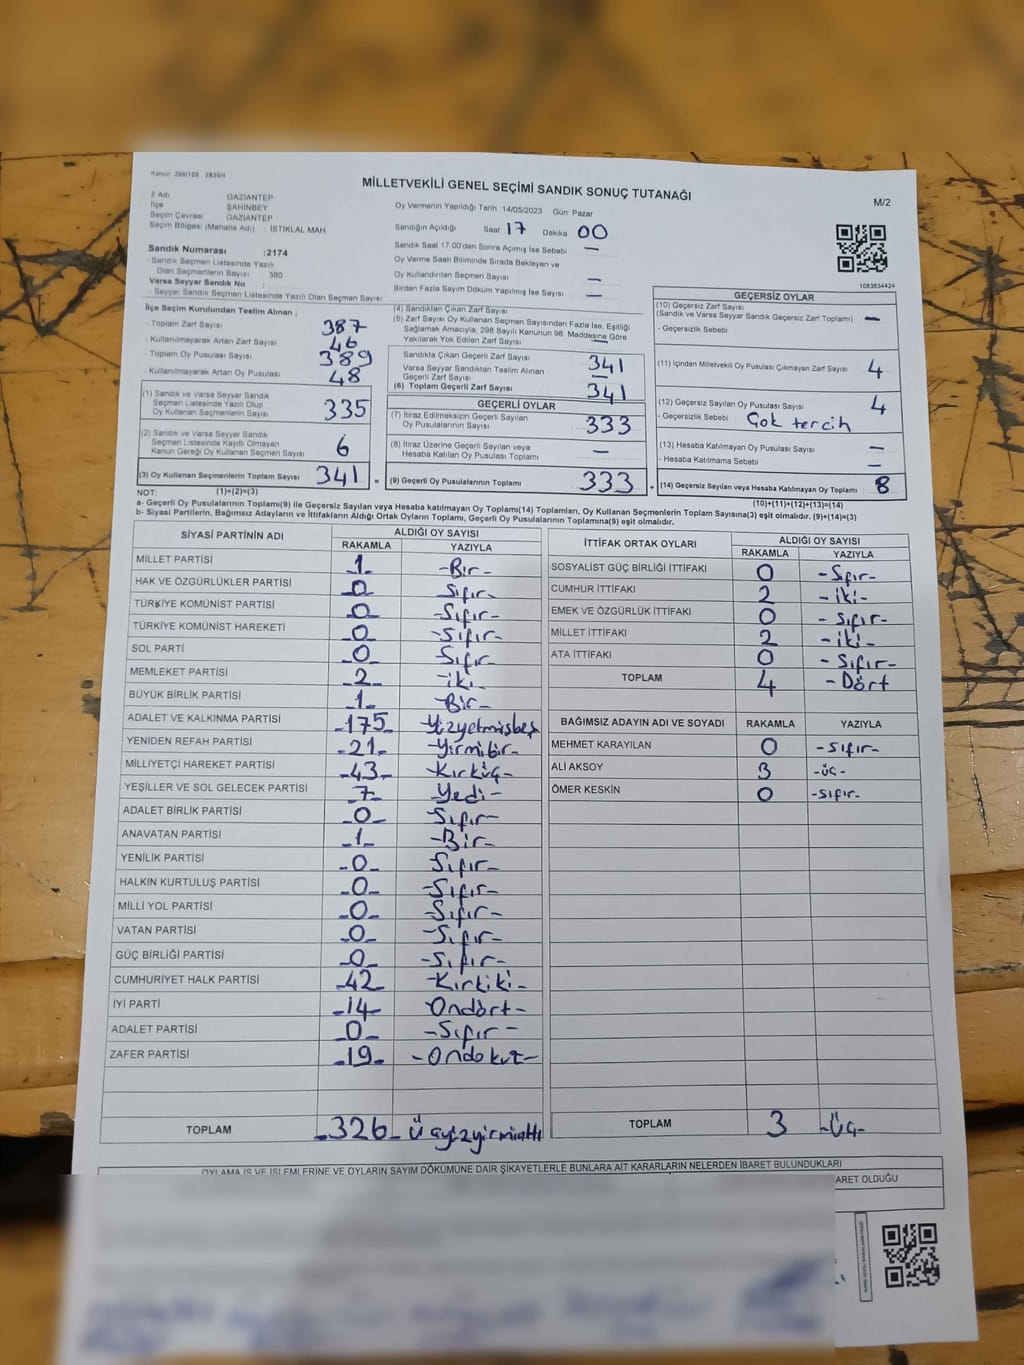 Kanun: 298/105 - 2839/4
MİLLETVEKİLİ GENEL SEÇİMİ SANDIK SONUÇ TUTANAĞI
M/2
İl Adı GAZİANTEP
İlçe ŞAHİNBEY
Seçim Çevresi GAZİANTEP
Seçim Bölgesi (Mahalle Adı) İSTİKLAL MAH
Sandık Numarası :2174
- Sandık Seçmen Listesinde Yazılı
Olan Seçmenlerin Sayısı : 380
Varsa Seyyar Sandık No :
- Seyyar Sandık Seçmen Listesinde Yazılı Olan Seçmen Sayısı
Oy Vermenin Yapıldığı Tarih :14/05/2023 Gün: Pazar
Sandığın Açıldığı Saat 17 Dakika 00
Sandık Saat 17.00'den Sonra Açılmış İse Sebebi —
Oy Verme Saati Bitiminde Sırada Bekleyen ve
Oy Kullandırılan Seçmen Sayısı —
Birden Fazla Sayım Döküm Yapılmış İse Sayısı —
1083834424
İlçe Seçim Kurulundan Teslim Alınan ;
- Toplam Zarf Sayısı 387
- Kullanılmayarak Artan Zarf Sayısı 46
- Toplam Oy Pusulası Sayısı 389
- Kullanılmayarak Artan Oy Pusulası 48
(1) Sandık ve Varsa Seyyar Sandık
Seçmen Listesinde Yazılı Olup
Oy Kullanan Seçmenlerin Sayısı 335
(2) Sandık ve Varsa Seyyar Sandık
Seçmen Listesinde Kayıtlı Olmayan
Kanun Gereği Oy Kullanan Seçmen Sayısı 6
(3) Oy Kullanan Seçmenlerin Toplam Sayısı 341 =
(4) Sandıktan Çıkan Zarf Sayısı
(5) Zarf Sayısı Oy Kullanan Seçmen Sayısından Fazla İse, Eşitliği
Sağlamak Amacıyla; 298 Sayılı Kanunun 98. Maddesine Göre
Yakılarak Yok Edilen Zarf Sayısı —
Sandıkta Çıkan Geçerli Zarf Sayısı 341
Varsa Seyyar Sandıktan Teslim Alınan
Geçerli Zarf Sayısı —
(6) Toplam Geçerli Zarf Sayısı 341
GEÇERLİ OYLAR
(7) İtiraz Edilmeksizin Geçerli Sayılan
Oy Pusulalarının Sayısı 333
(8) İtiraz Üzerine Geçerli Sayılan veya
Hesaba Katılan Oy Pusulası Toplamı —
(9) Geçerli Oy Pusulalarının Toplamı 333 +
GEÇERSİZ OYLAR
(10) Geçersiz Zarf Sayısı
(Sandık ve Varsa Seyyar Sandık Geçersiz Zarf Toplamı) —
- Geçersizlik Sebebi
(11) İçinden Milletvekili Oy Pusulası Çıkmayan Zarf Sayısı 4
(12) Geçersiz Sayılan Oy Pusulası Sayısı 4
- Geçersizlik Sebebi Çok tercih
(13) Hesaba Katılmayan Oy Pusulası Sayısı —
- Hesaba Katılmama Sebebi —
(14) Geçersiz Sayılan veya Hesaba Katılmayan Oy Toplamı 8
NOT: (1)+(2)=(3) (10)+(11)+(12)+(13)=(14)
a- Geçerli Oy Pusulalarının Toplamı(9) ile Geçersiz Sayılan veya Hesaba katılmayan Oy Toplamı(14) Toplamları, Oy Kullanan Seçmenlerin Toplam Sayısına(3) eşit olmalıdır. (9)+(14)=(3)
b- Siyasi Partilerin, Bağımsız Adayların ve İttifakların Aldığı Ortak Oyların Toplamı, Geçerli Oy Pusulalarının Toplamına(9) eşit olmalıdır.
SİYASİ PARTİNİN ADI ALDIĞI OY SAYISI
RAKAMLA YAZIYLA
MİLLET PARTİSİ 1 -Bir-
HAK VE ÖZGÜRLÜKLER PARTİSİ 0 Sıfır-
TÜRKİYE KOMÜNİST PARTİSİ 0 -Sıfır-
TÜRKİYE KOMÜNİST HAREKETİ 0 -Sıfır-
SOL PARTİ 0 Sıfır
MEMLEKET PARTİSİ -2- -iki-
BÜYÜK BİRLİK PARTİSİ -1- -Bir-
ADALET VE KALKINMA PARTİSİ -175- Yüzyetmişbeş
YENİDEN REFAH PARTİSİ -21- -Yirmibir-
MİLLİYETÇİ HAREKET PARTİSİ -43- -Kırküç-
YEŞİLLER VE SOL GELECEK PARTİSİ -7- -Yedi-
ADALET BİRLİK PARTİSİ -0- Sıfır-
ANAVATAN PARTİSİ -1- -Bir-
YENİLİK PARTİSİ -0- Sıfır-
HALKIN KURTULUŞ PARTİSİ -0- -Sıfır-
MİLLİ YOL PARTİSİ -0- -Sıfır-
VATAN PARTİSİ -0- -Sıfır-
GÜÇ BİRLİĞİ PARTİSİ -0- -Sıfır-
CUMHURİYET HALK PARTİSİ -42- -Kırkiki-
İYİ PARTİ -14- Ondört-
ADALET PARTİSİ -0- -Sıfır-
ZAFER PARTİSİ -19- -Ondokuz-
TOPLAM -326- Üçyüzyirmialtı
İTTİFAK ORTAK OYLARI ALDIĞI OY SAYISI
RAKAMLA YAZIYLA
SOSYALİST GÜÇ BİRLİĞİ İTTİFAKI 0 -Sıfır-
CUMHUR İTTİFAKI 2 -iki-
EMEK VE ÖZGÜRLÜK İTTİFAKI 0 -Sıfır-
MİLLET İTTİFAKI 2 -iki-
ATA İTTİFAKI 0 -Sıfır-
TOPLAM 4 -Dört
BAĞIMSIZ ADAYIN ADI VE SOYADI RAKAMLA YAZIYLA
MEHMET KARAYILAN 0 -Sıfır-
ALİ AKSOY 3 -üç-
ÖMER KESKİN 0 -Sıfır-
TOPLAM 3 -Üç-
OYLAMA İŞ VE İŞLEMLERİNE VE OYLARIN SAYIM DÖKÜMÜNE DAİR ŞİKAYETLERLE BUNLARA AİT KARARLARIN NELERDEN İBARET BULUNDUKLARI
ARET OLDUĞU